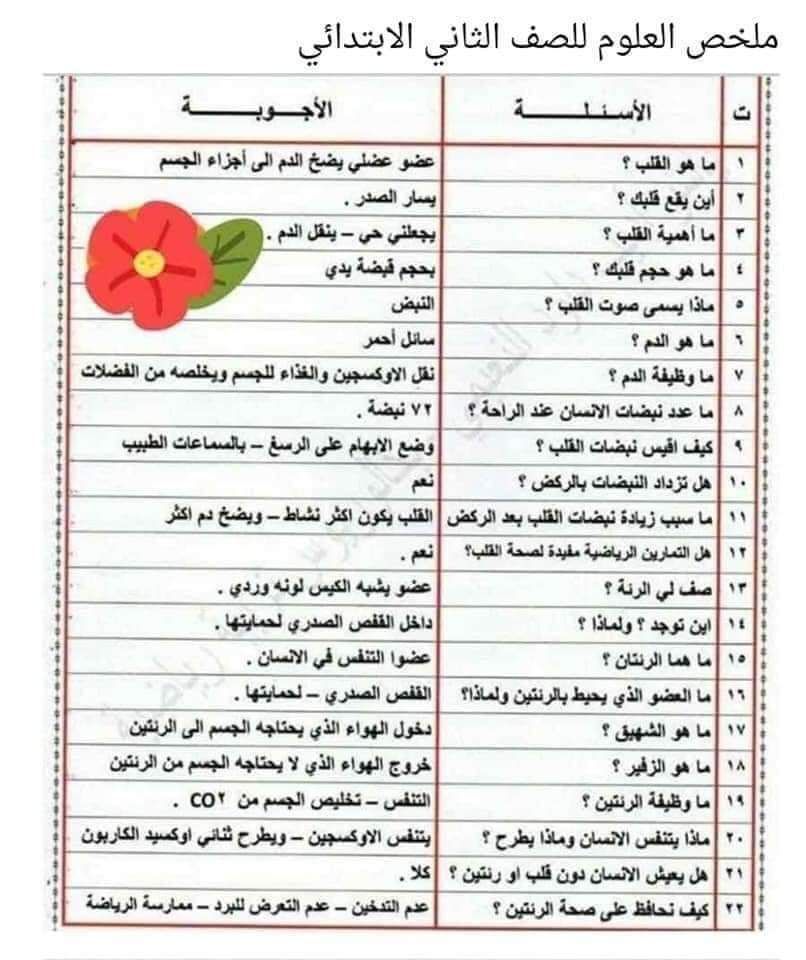 ملخص العلوم للصف الثاني الابتدائي
ت الأسئلة الأجوبة
١ ما هو القلب ؟ عضو عضلي يضخ الدم الى أجزاء الجسم
٢ أين يقع قلبك ؟ يسار الصدر .
٣ ما أهمية القلب ؟ يجعلني حي – ينقل الدم .
٤ ما هو حجم قلبك ؟ بحجم قبضة يدي
٥ ماذا يسمى صوت القلب ؟ النبض
٦ ما هو الدم ؟ سائل أحمر
٧ ما وظيفة الدم ؟ نقل الاوكسجين والغذاء للجسم ويخلصه من الفضلات
٨ ما عدد نبضات الانسان عند الراحة ؟ ٧٢ نبضة .
٩ كيف اقيس نبضات القلب ؟ وضع الابهام على الرسغ – بالسماعات الطبيب
١٠ هل تزداد النبضات بالركض ؟ نعم
١١ ما سبب زيادة نبضات القلب بعد الركض القلب يكون اكثر نشاط – ويضخ دم اكثر
١٢ هل التمارين الرياضية مفيدة لصحة القلب؟ نعم .
١٣ صف لي الرئة ؟ عضو يشبه الكيس لونه وردي .
١٤ اين توجد ؟ ولماذا ؟ داخل القفص الصدري لحمايتها .
١٥ ما هما الرئتان ؟ عضوا التنفس في الانسان .
١٦ ما العضو الذي يحيط بالرئتين ولماذا؟ القفص الصدري – لحمايتها .
١٧ ما هو الشهيق ؟ دخول الهواء الذي يحتاجه الجسم الى الرئتين
١٨ ما هو الزفير ؟ خروج الهواء الذي لا يحتاجه الجسم من الرئتين
١٩ ما وظيفة الرئتين ؟ التنفس – تخليص الجسم من CO٢ .
٢٠ ماذا يتنفس الانسان وماذا يطرح ؟ يتنفس الاوكسجين – ويطرح ثنائي اوكسيد الكاربون
٢١ هل يعيش الانسان دون قلب او رئتين ؟ كلا .
٢٢ كيف نحافظ على صحة الرئتين ؟ عدم التدخين – عدم التعرض للبرد – ممارسة الرياضة